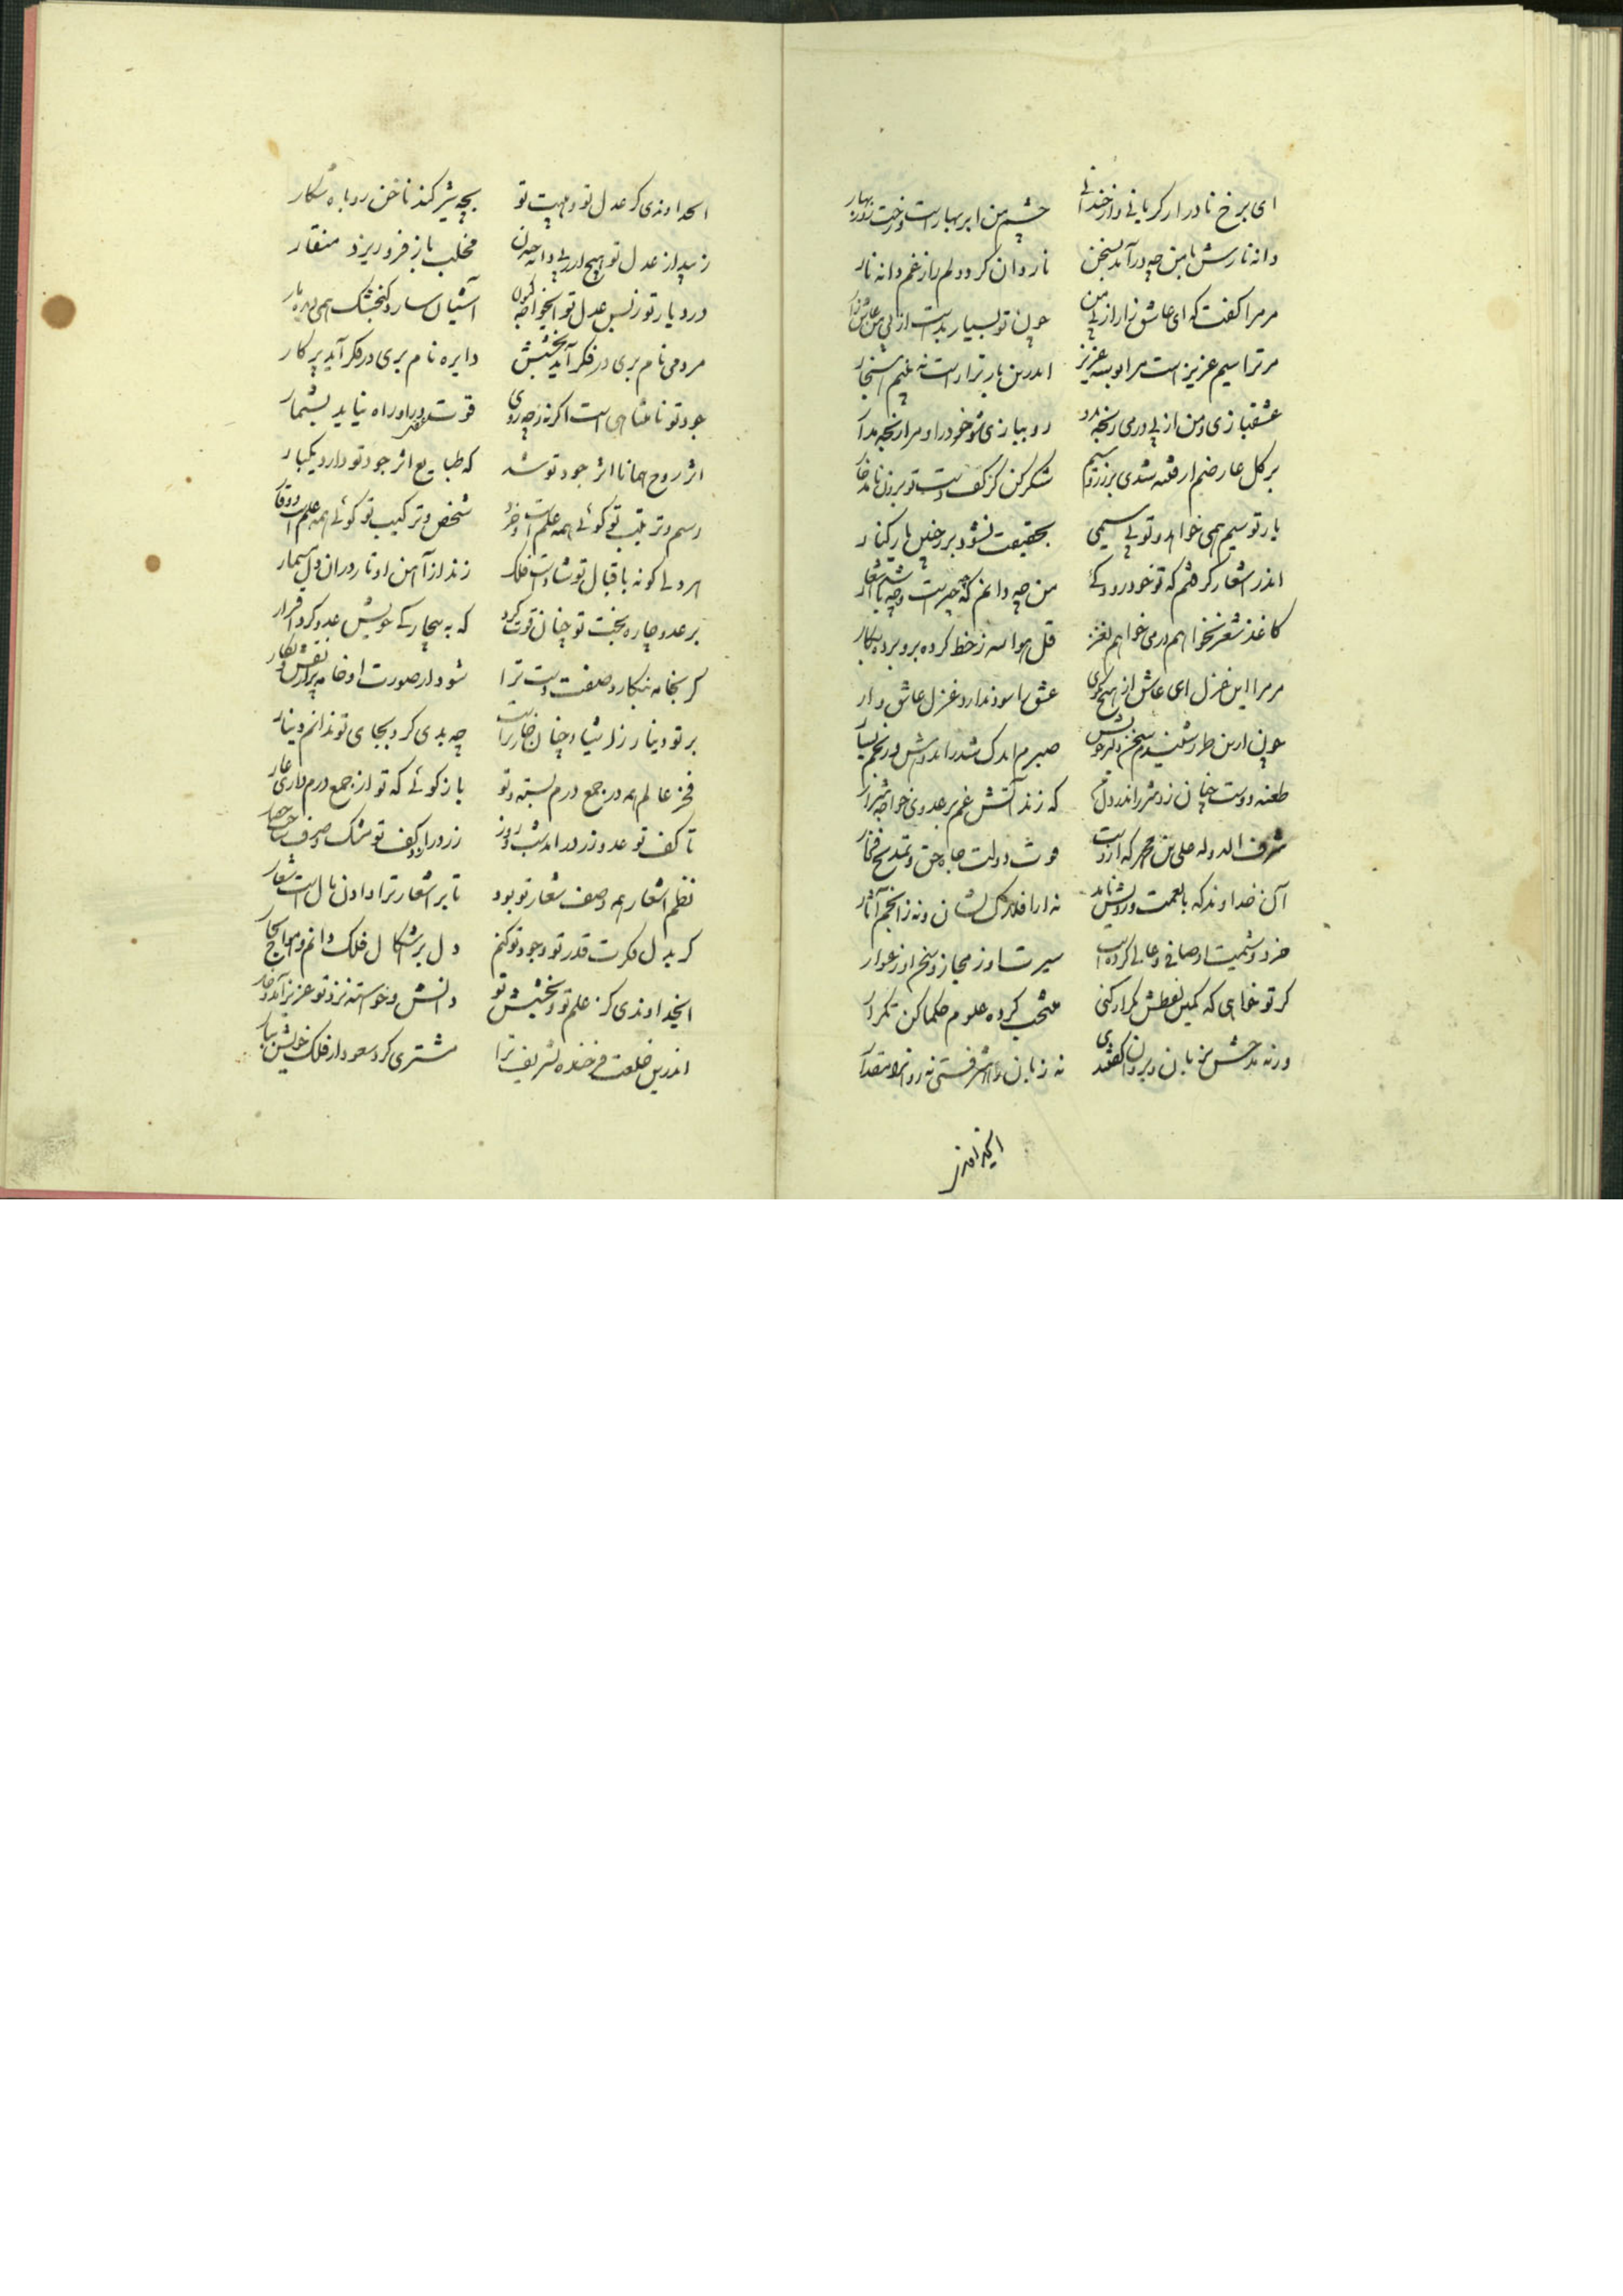 ای برخ نادر ار کریانی وار خندانی چشم من ابر بهارست و رخت روز بهار
دانه نارش با من چه درآمد بسخن ناردان کرد دلم را ز غم دانه نار
مر مرا کفت که ای عاشق زار از پی من چون تو بسیار بدست از پی من عاشق زار
مر ترا سیم عزیز است مرا بوسه عزیز اندرین بار ترا راست نه غنیم
عشقبازی و من از بی درمی رنجه مرو رو ببازی شو خود را و مرا رنجه مدار
بر کل عارضم ار فتنه شدی بی زر و سیم شکر کن کز کف دست تو برون نامد خار
یار تو سیم همی خواهد و تو بی سیمی بحقیقت نشود بر رخش یار کنار
اندر اشعار کرفتم که تو خود رودکیی من چه دانم که چه چیزست و چه باشد اشعار
کاغذ شعر نخواهم درمی خواهم نغز قل هو الله ز خط کرده برو بر
مر مرا این غزل ای عاشق از هیچ مکوی عشق را سود ندارد غزل عاشق وار
چون ازین طرز شنیدم سخن دلبر خویش صبرم اندک شد و اندوهش و رنجم بسیار
طعنه دوست چنان زد شرر اندر دل من که زند آتش غم بر عدوی خواجه شرار
شرف الدوله علی بن محمد که ازوست دولت جاه حق و تمدیح فخار
آن خداوند که با نعمت و رویش ناید نه ز افلاک نشان و نه ز انجم آثار
خرد و شمیت او صافی و عالی کرده است سیرت او ز مجاز و سخن او ز عوار
کر تو خواهی که کمین لفظش تکرار کنی منتخب کرده علوم حکما کن تکرار
ورنه مدحش بزبان و بروان کفتندی نه زبان را شرفستی نه روان را مقدار
ایخداوند
ایخداوندی کز عدل تو و هیبت تو بچه شیر کند ناخن روباه شکار
زیبد از عدل تو هیچ ار پی دانه چدن مخلب باز فرو ریزد منقار
در دیار تو ز بس عدل تو ایخواجه کنون آشیان سازد کنجشک همی بر مار
مردمی نام بری در فکر آید بخشش دایره نام بری در فکر آید پرکار
جود تو نامتناهی است اکر نه ز چه روی قوت وهم در او راه نیابد بشمار
اثر روح همانا اثر جود تو شد که طبایع اثر جود تو دارد یکبار
رسم و ترتیب تو کوئی همه علم است و خرد شخص و ترکیب تو کوئی همه حلم است و وقار
هر دلی کو نه باقبال تو شادست فلک زند از آهن او تا رود آن دل مسمار
بر عدو چاره بخت تو چنان قوت کرد که به بیچارکی خویش عدو کرد اقرار
کر بخامه بنکارد صفت دست ترا شود از صورت او خامه پر از نقش و نکار
بر تو دینار ز اشیا و چنان خوارترست چه بدی کرد بجای تو ندانم دینار
فخر عالم همه در جمع درم بسته و تو باز کوئی که تو از جمع درم داری عار
تا کف تو عدو زر در آمد شب و روز زر در آن کف تو مشک و صدف ساخت حصار
نظم اشعار همه وصف شعار تو بود تا بر اشعار ترا دادن مال است شعار
کر بدل فکرت قدر تو و جود تو کنم دل پر اشکال فلک دانم و امواج بحار
ایخداوندی کز علم تو و بخشش تو دانش و خواسته نزد تو عزیز آمد و خوار
اندرین خلعت فرخنده تشریف ترا مشتری کرد سعود از فلک خویش نثار